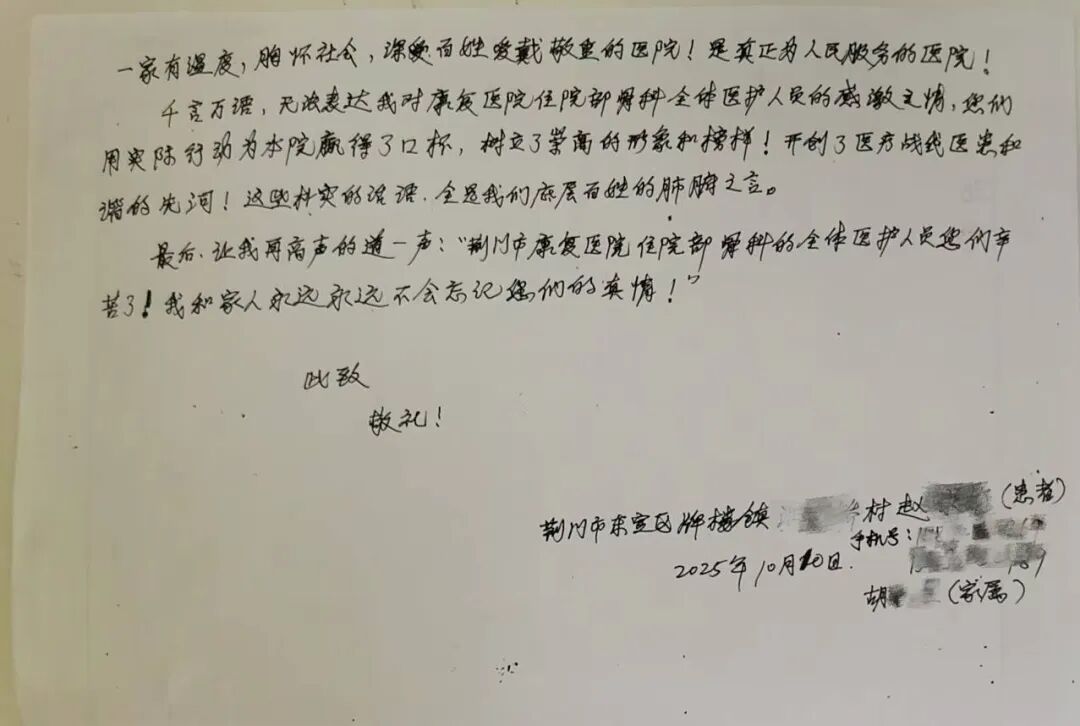 一家有温度，胸怀社会，深受百姓爱戴敬重的医院！是真正为人民服务的医院！
千言万语，无法表达我对康复医院住院部骨科全体医护人员的感激之情，您们
用实际行动为本院赢得了口杯，树立了崇高的形象和榜样！开创了医疗战线医患和
谐的先河！这些朴实的话语．全是我们底层百姓的肺腑之言。
最后．让我再高声的道一声：“荆门市康复医院住院部骨科的全体医护人员您们辛
苦了！我和家人永远永远不会忘记您们的真情！”
此致
敬礼！
荆门市东宝区牌楼镇 村赵 （患者）
手机号：
2025年10月10日.
胡 （家属）